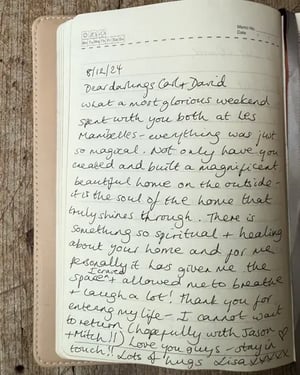 Memo No.
Date
8/12/24
Dear darlings Carl + David
What a most glorious weekend
spent with you both at Les
Mambelles - everything was just
so magical. Not only have you
created and built a magnificent
beautiful home on the outside -
it is the soul of the home that
truly shines through. There is
something so spiritual + healing
about your home and for me
personally it has given me the
I craved
space + allowed me to breathe
+ laugh a lot! Thank you for
entering my life - I cannot wait
to return (hopefully with Jason
+ Mitch!!) Love you guys - stay in
touch!! Lots of hugs Lisa xxxxx